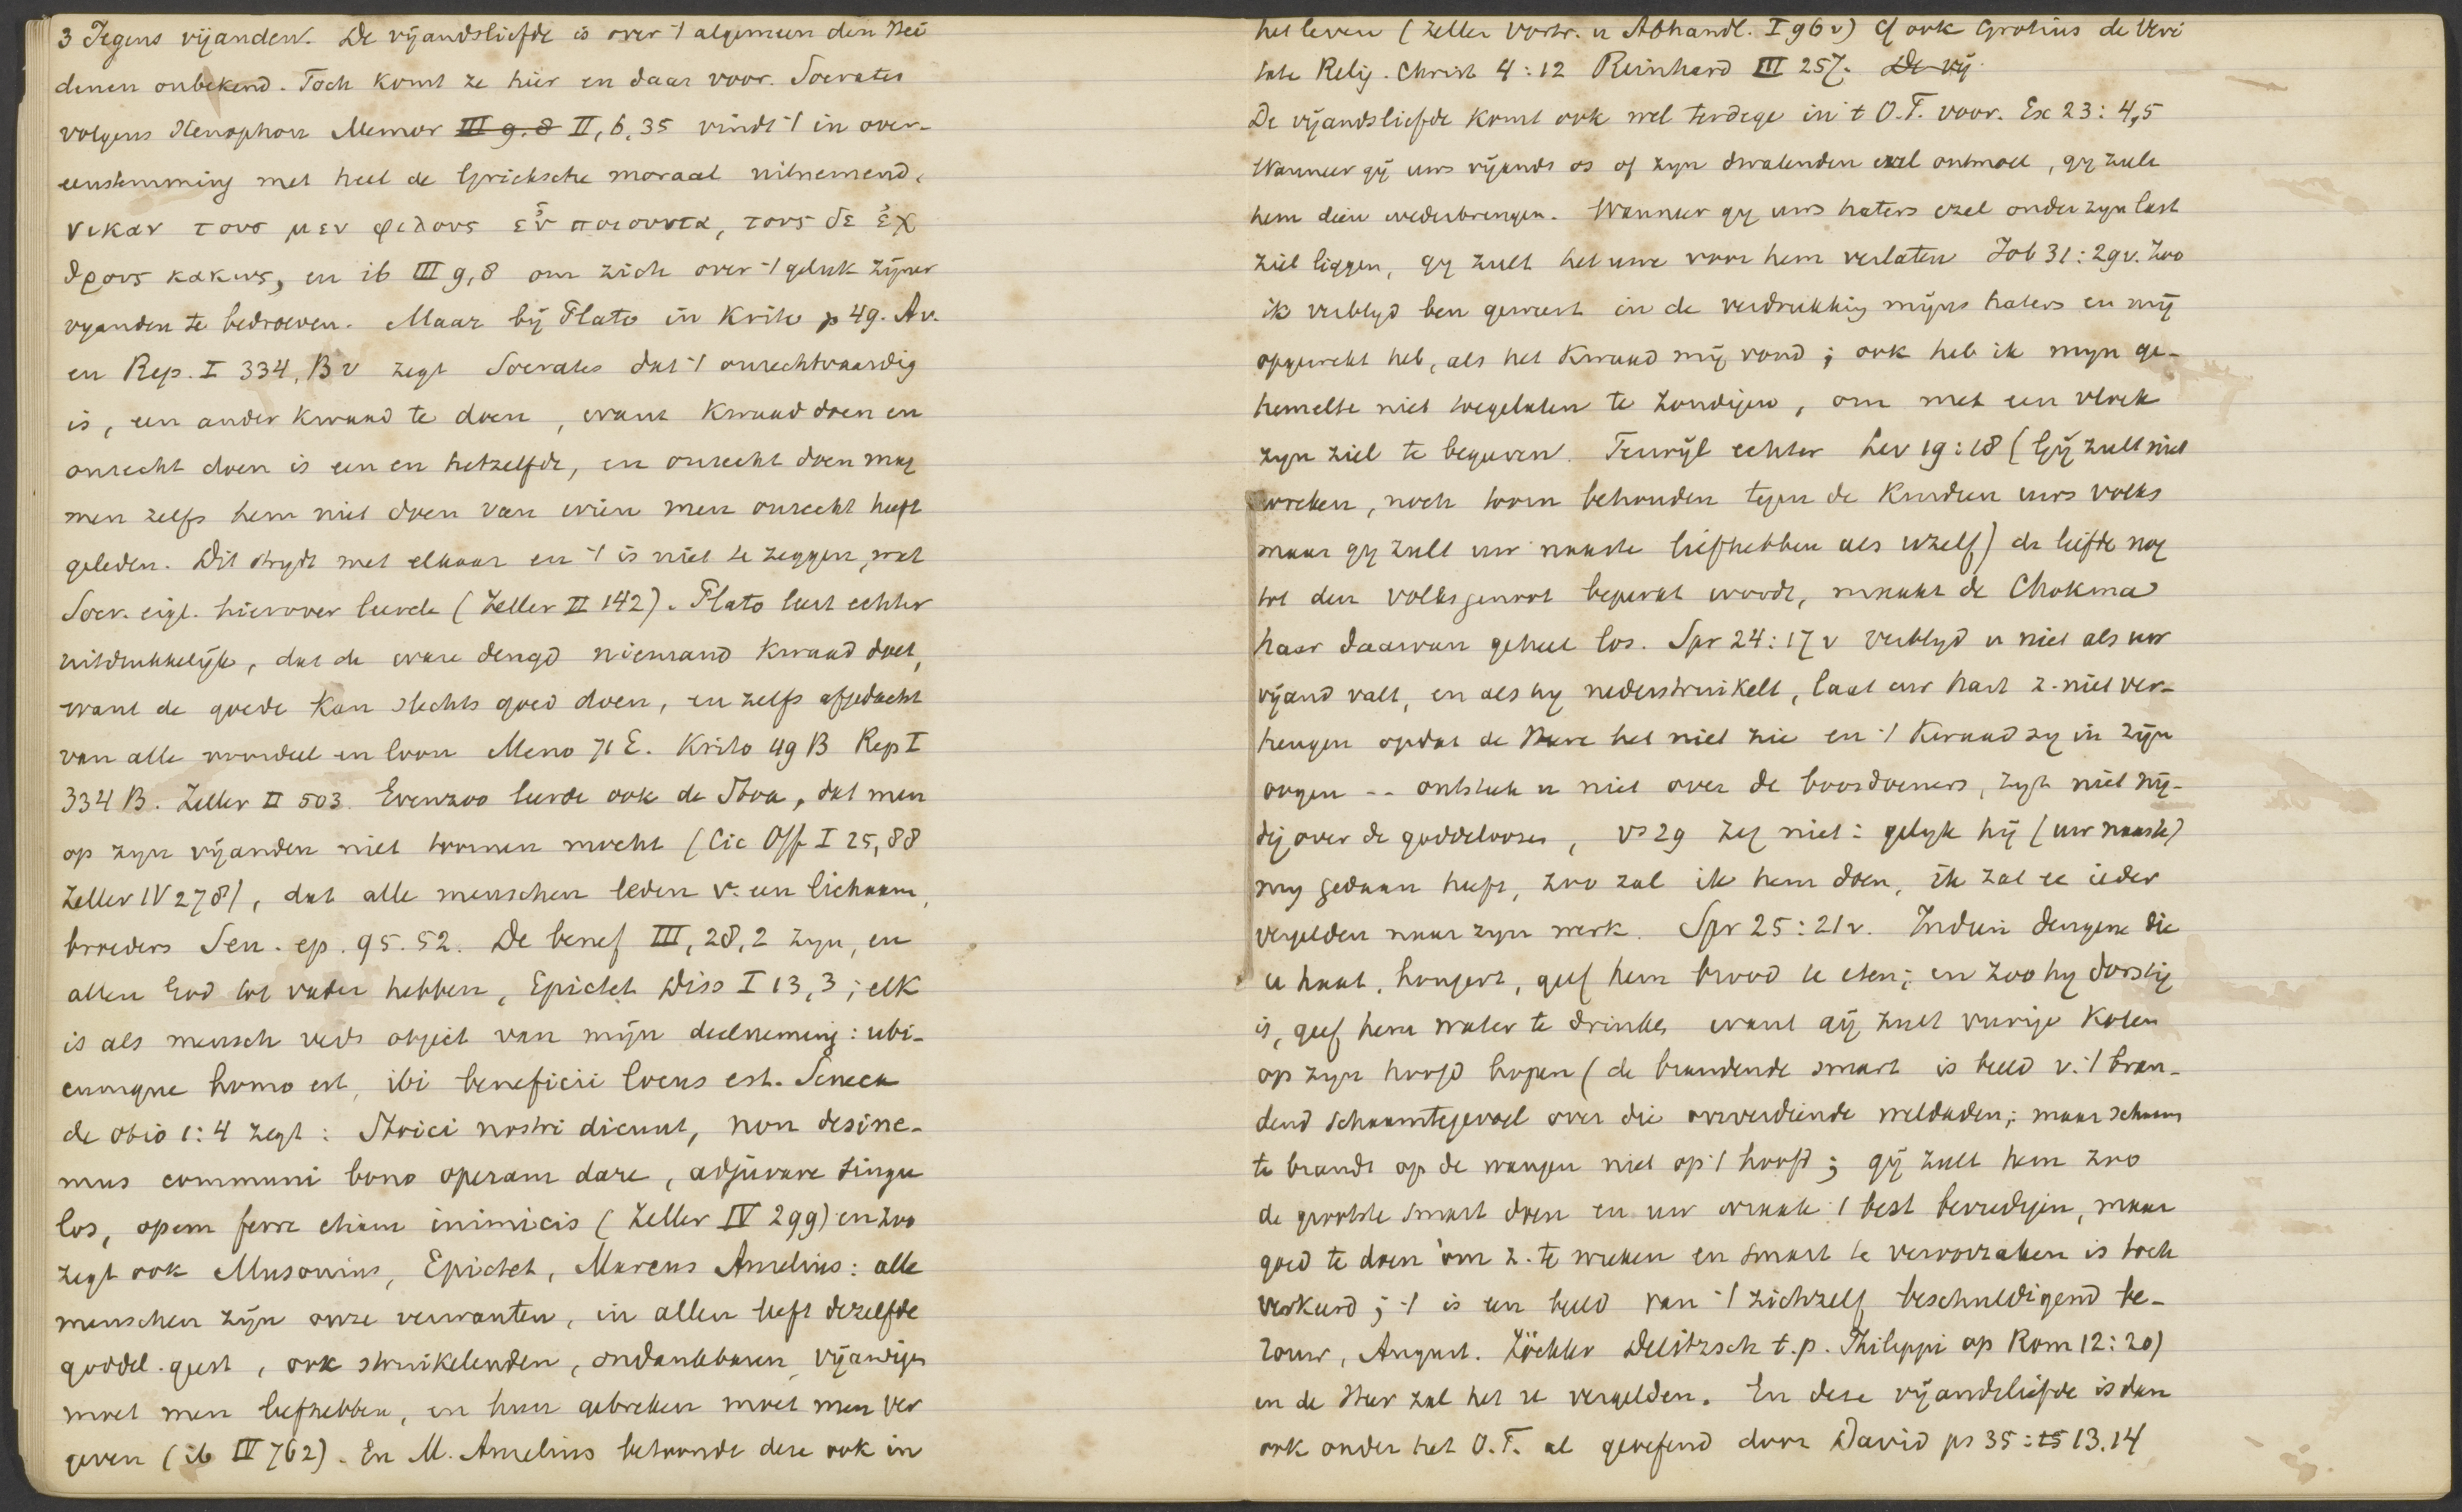 3 Tegens vijanden. De vijandsliefde is over 't algemeen den Hei
denen onbekend. Toch komt ze hier en daar voor. Socrates
volgens Xenophon Memor III 9.8 II, 6, 35 vindt 't in over-
eenstemming met heel de Grieksche moraal uitnemend,
νικαν τους μεν φιλους εὐ ποιουντα, τους δε ἐχ
θρους κακως, en ib III 9,8 om zich over 't geluk zijner
vyanden te bedroeven. Maar bij Plato in Krito p 49. Av.
en Rep. I 334, B v zegt Socrates dat 't onrechtvaardig
is, een ander kwaad te doen, want kwaad doen en
onrecht doen is een en hetzelfde, en onrecht doen mag
men zelfs hem niet doen van wien men onrecht heeft
geleden. Dit strydt met elkaar en 't is niet te zeggen, wat
Socr. eigl. hierover leerde (Zeller II 142). Plato leert echter
uitdrukkelijk, dat de ware deugd niemand kwaad doet,
want de goede kan slechts goed doen, en zelfs afgedacht
van alle voordeel en loon Meno 71 E. Krito 49 B Rep I
334 B. Zeller II 503. Evenzoo leerde ook de Stoa, dat men
op zyn vijanden niet toornen mocht (Cic Off I 25, 88
Zeller IV 278), dat alle menschen leden v. een lichaam,
broeders Sen. ep. 95. 52. De benef III, 28, 2 zyn, en
allen God tot vader hebben, Epictet Diss I 13, 3; elk
is als mensch reeds object van mijn deelneming: ubi-
cumque homo est, ibi beneficii locus est. Seneca
de otio 1: 4 zegt: Stoici nostri dicunt, non desine-
mus communi bono operam dare, adjuvare singu
los, opem ferre etiam inimicis (Zeller IV 299) en zoo
zegt ook Musonius, Epictet, Marcus Aurelius: alle
menschen zijn onze verwanten, in allen leeft dezelfde
goddel. geest, ook struikelenden, ondankbaren, vijandigen
moet men liefhebben, en hun gebreken moet men ver
geven (ib IV 762). En M. Aurelius betoonde deze ook in
het leven (Zeller Vortr. u Abhandl. I 96 v) Cf ook Grotius de Veri
tate Relig. Christ 4: 12 Reinhard III 257. De vij
De vijandsliefde komt ook wel terdege in 't O.T. voor. Ex 23: 4,5
Wanneer gij uws vijands os of zyn dwalenden ezel ontmoet, gy zult
hem dien wederbrengen. Wanneer gy uws haters ezel onder zyn last
ziet liggen, gy zult het uwe voor hem verlaten Job 31: 29 v. Zoo
ik verblyd ben geweest in de verdrukking mijns haters en mij
opgewekt heb, als het kwaad mij vond; ook heb ik myn ge-
hemelte niet toegelaten te zondigen, om met een vloek
zyn ziel te begeeren. Terwijl echter Lev 19: 18 (Gij zult niet
wreken, noch toorn behouden tegen de kinderen uws volks
maar gy zult uw naaste liefhebben als uzelf) de liefde nog
tot den volksgenoot beperkt wordt, maakt de Chokma
haar daarvan geheel los. Spr 24: 17 v Verblyd u niet als uw
vijand valt, en als hy nederstruikelt, laat uw hart z. niet ver-
heugen opdat de Heere het niet zie en 't kwaad zy in zijn
oogen -- ontsteek u niet over de boosdoeners, zyt niet nij-
dig over de goddeloozen, vs 29 Zeg niet: gelyk hij (uw naaste)
my gedaan heeft, zoo zal ik hem doen, ik zal ee ieder
vergelden naar zyn werk. Spr 25: 21 v. Indien dengene die
u haat, hongert, geef hem brood te eten; en zoo hy dorstig
is, geef hem water te drinken want gij zult vurige kolen
op zyn hoofd hopen (de brandende smart is beeld v. 't bran-
dend schaamtegevoel over die onverdiende weldaden; maar schaam
te brandt op de wangen niet op 't hoofd; gij zult hem zoo
de grootste smart doen en uw wraak 't best bevredigen, maar
goed te doen om z. te wreken en smart te veroorzaken is toch
verkeerd; 't is een beeld van 't zichzelf beschuldigend be-
rouw, August. Zöckler Delitzsch t.p. Philippi op Rom 12: 20)
en de Heer zal het u vergelden. En deze vijandsliefde is dan
ook onder het O.T. al geoefend door David ps 35: 15 13. 14